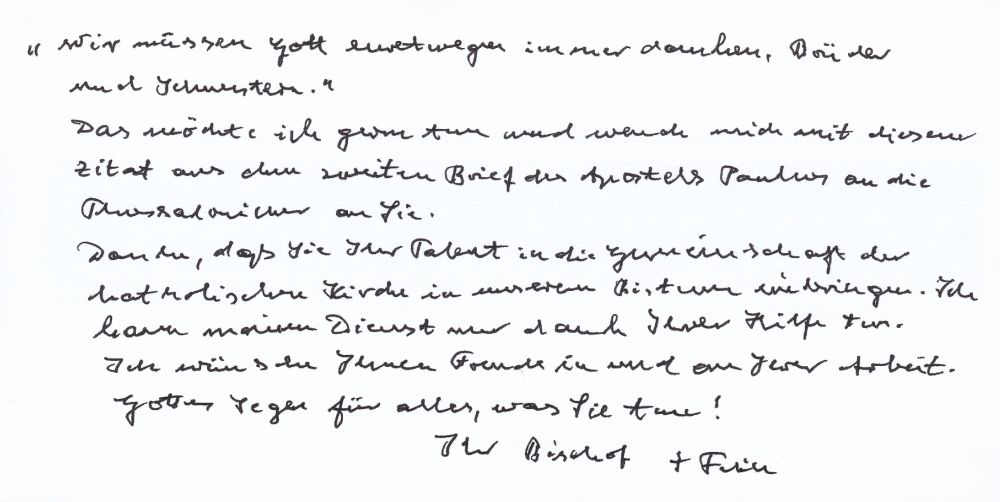 "Wir müssen Gott euretwegen immer danken, Brüder
und Schwestern."
Das möchte ich gerne tun und wende mich mit diesem
Zitat aus dem zweiten Brief des Apostels Paulus an die
Thessalonicher an Sie.
Danke, daß Sie Ihr Talent in die Gemeinschaft der
katholischen Kirche in unserem Bistum einbringen. Ich
kann meinen Dienst nur dank Ihrer Hilfe tun.
Ich wünsche Ihnen Freude in und an Ihrer Arbeit.
Gottes Segen für alles, was Sie tun!
Ihr Bischof +